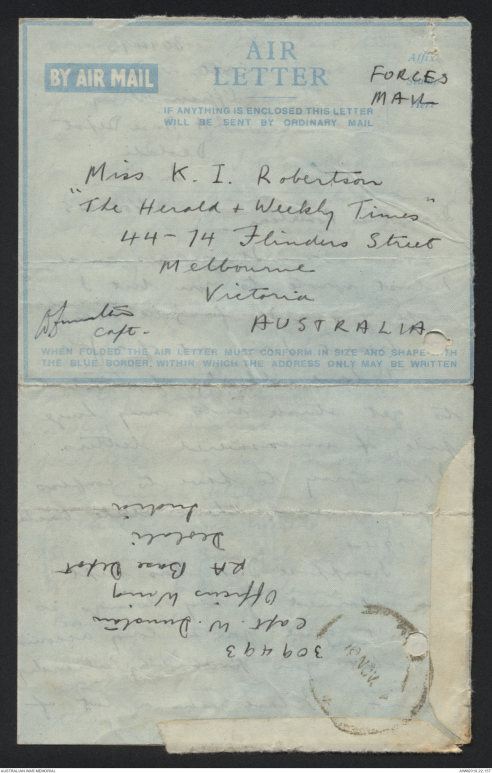 AIR
LETTER
BY AIR MAIL
FORCES
MAIL
IF ANYTHING IS ENCLOSED THIS LETTER
WILL BE SENT BY ORDINARY MAIL
Miss K. I. Robertson
"The Herald & Weekly Times"
44-74 Flinders Street
Melbourne
Victoria
AUSTRALIA
Capt.
WHEN FOLDED THE AIR LETTER MUST CONFORM IN SIZE AND SHAPE WITH
THE BLUE BORDER, WITHIN WHICH THE ADDRESS ONLY MAY BE WRITTEN
309493
Capt. W. Dunstan
Officers Wing
RA Base Depot
Deolali
India
NOV
AUSTRALIAN WAR MEMORIAL